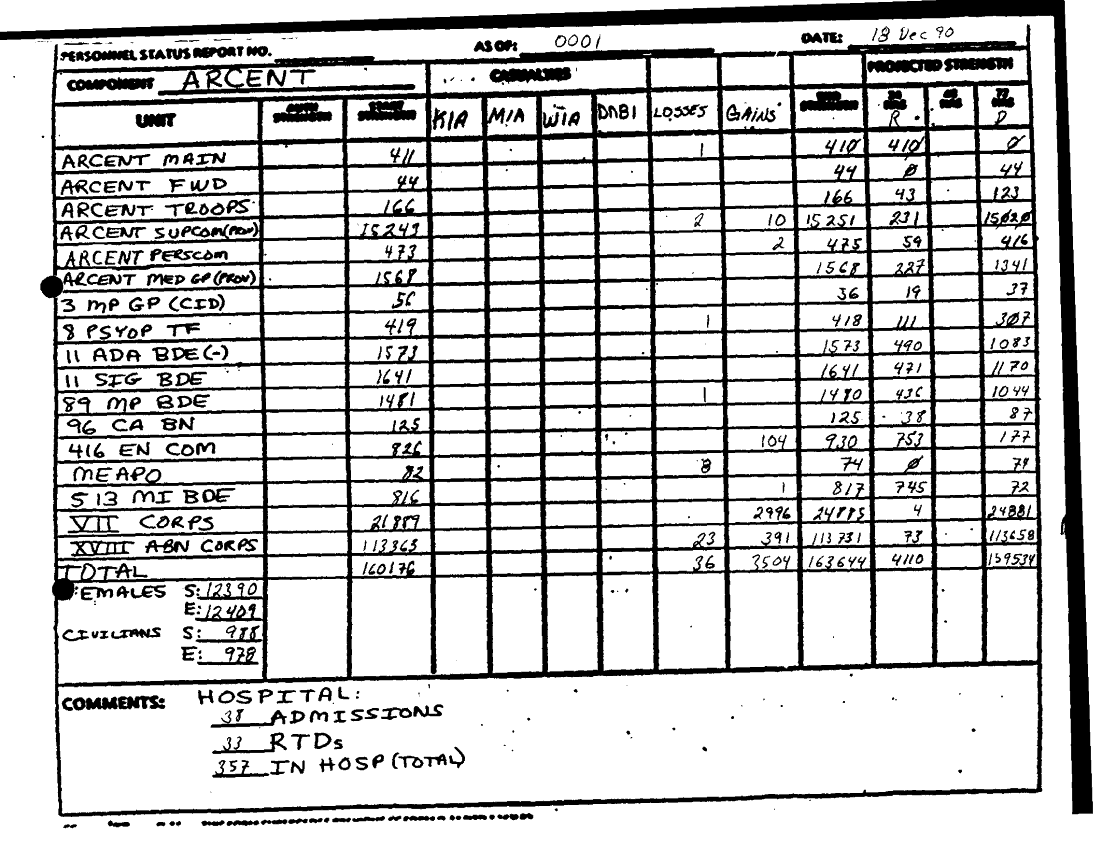 PERSONNEL STATUS REPORT NO. AS OF: 0001 DATE: 18 Dec 90
COMPONENT ARCENT CASUALTIES PROJECTED STRENGTH
UNIT AUTH STRENGTH START STRENGTH KIA MIA WIA DNBI LOSSES GAINS END STRENGTH 24 HRS 48 HRS 72 HRS
R
ARCENT MAIN 411 1 410 410 0
ARCENT FWD 44 44 0 44
ARCENT TROOPS 166 166 43 123
ARCENT SUPCOM(PROV) 15243 2 10 15251 231 15020
ARCENT PERSCOM 473 2 475 59 416
ARCENT MED GP (PROV) 1568 1568 227 1341
3 MP GP (CID) 56 36 19 37
8 PSYOP TF 419 1 418 111 307
11 ADA BDE(-) 1573 1573 490 1083
11 SIG BDE 1641 1641 471 1170
89 MP BDE 1481 1 1480 436 1044
96 CA BN 125 125 38 87
416 EN COM 826 104 930 753 177
MEAPO 82 8 74 0 74
513 MI BDE 816 1 817 745 72
VII CORPS 21889 2996 24885 4 24881
XVIII ABN CORPS 113363 23 391 113731 73 113658
TOTAL 160176 36 3504 163644 4110 159534
FEMALES S: 12390
E: 12409
CIVILIANS S: 988
E: 978
COMMENTS: HOSPITAL:
38 ADMISSIONS
33 RTDs
357 IN HOSP (TOTAL)